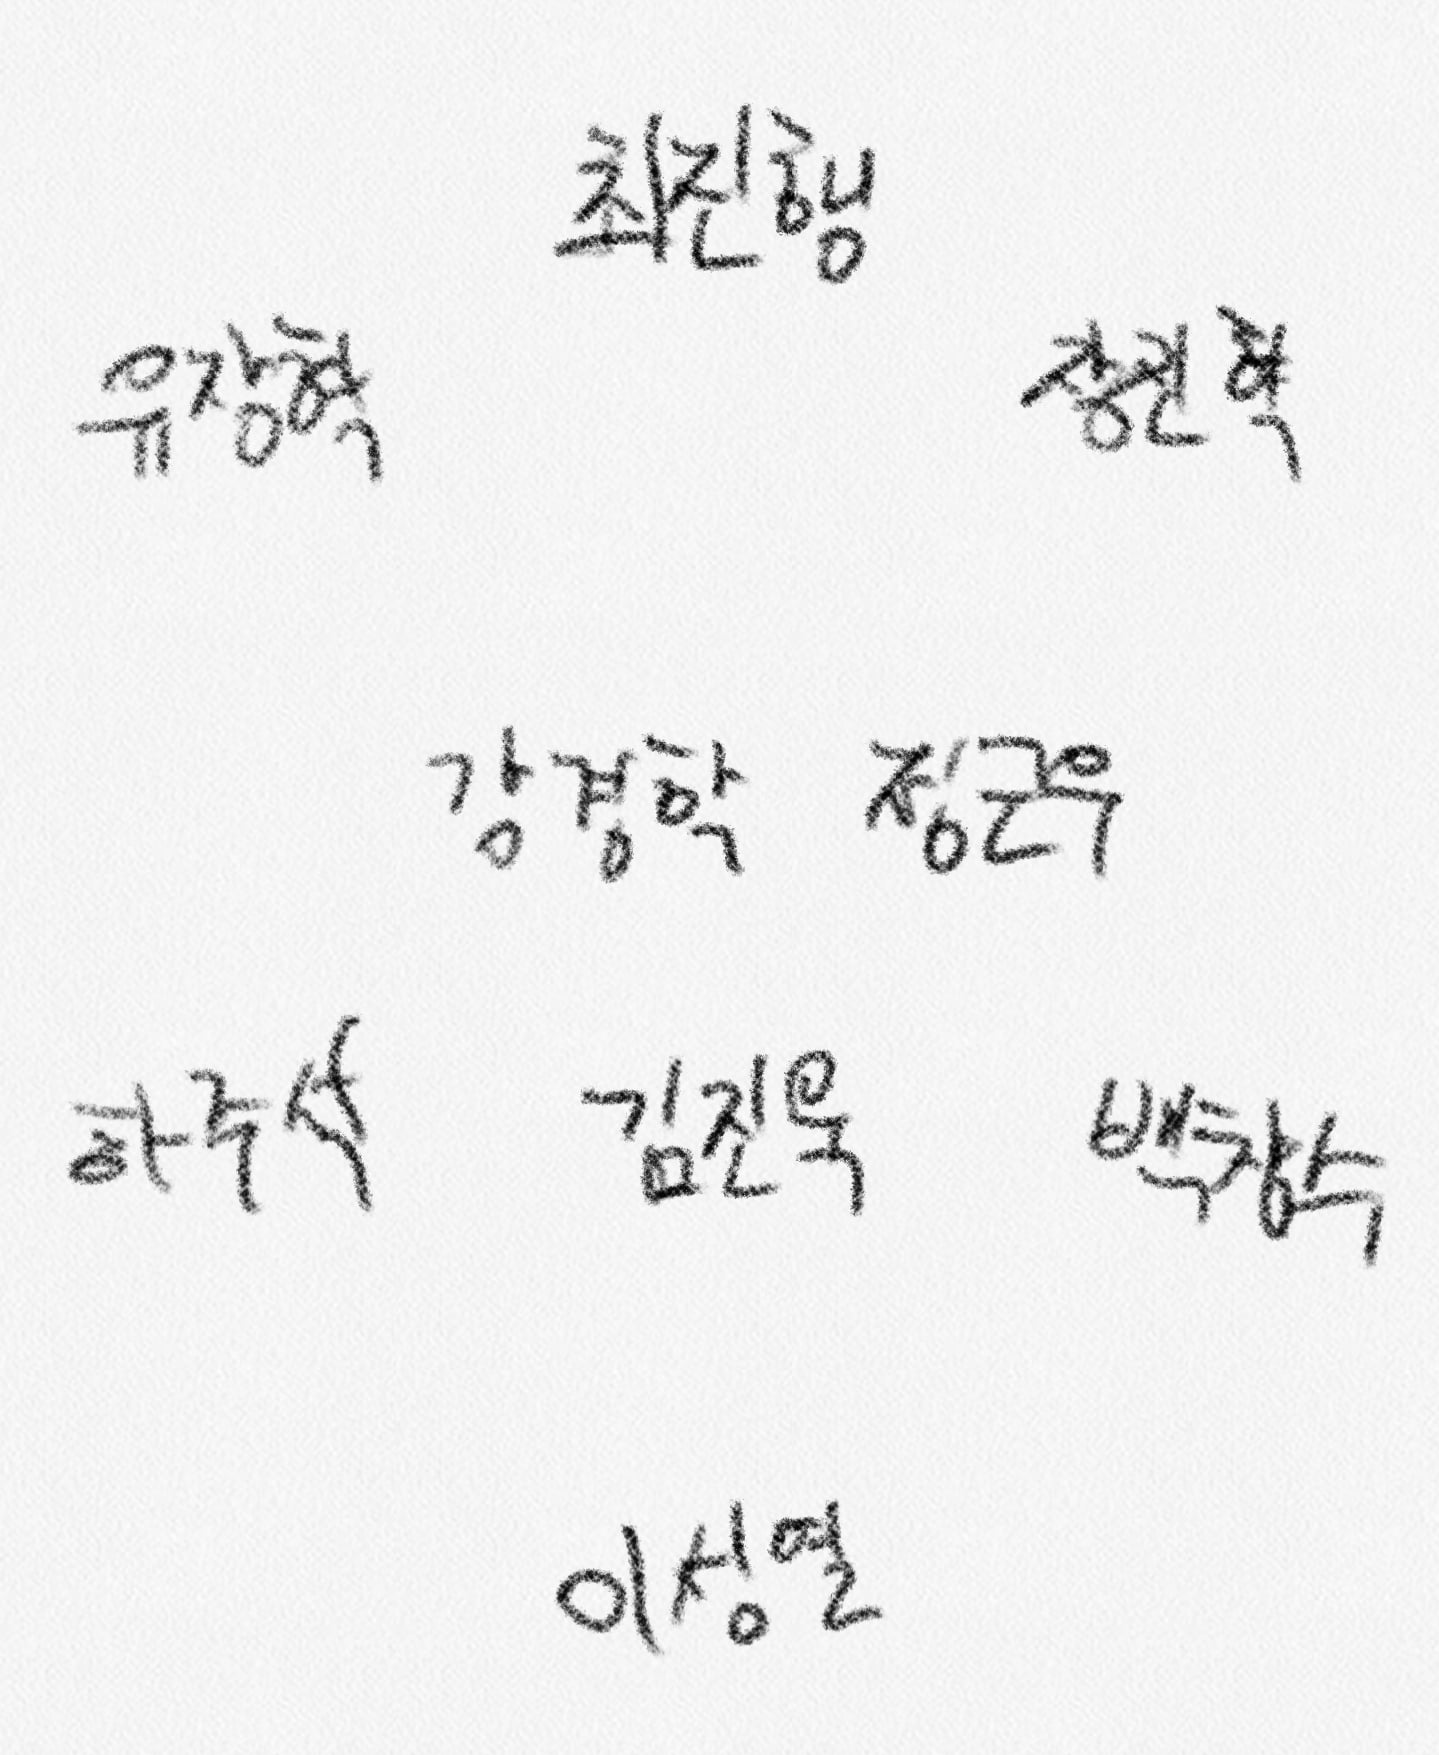 최진행
유장혁 장진혁
강경학 정근우
하주석 김진욱 백창수
이성열